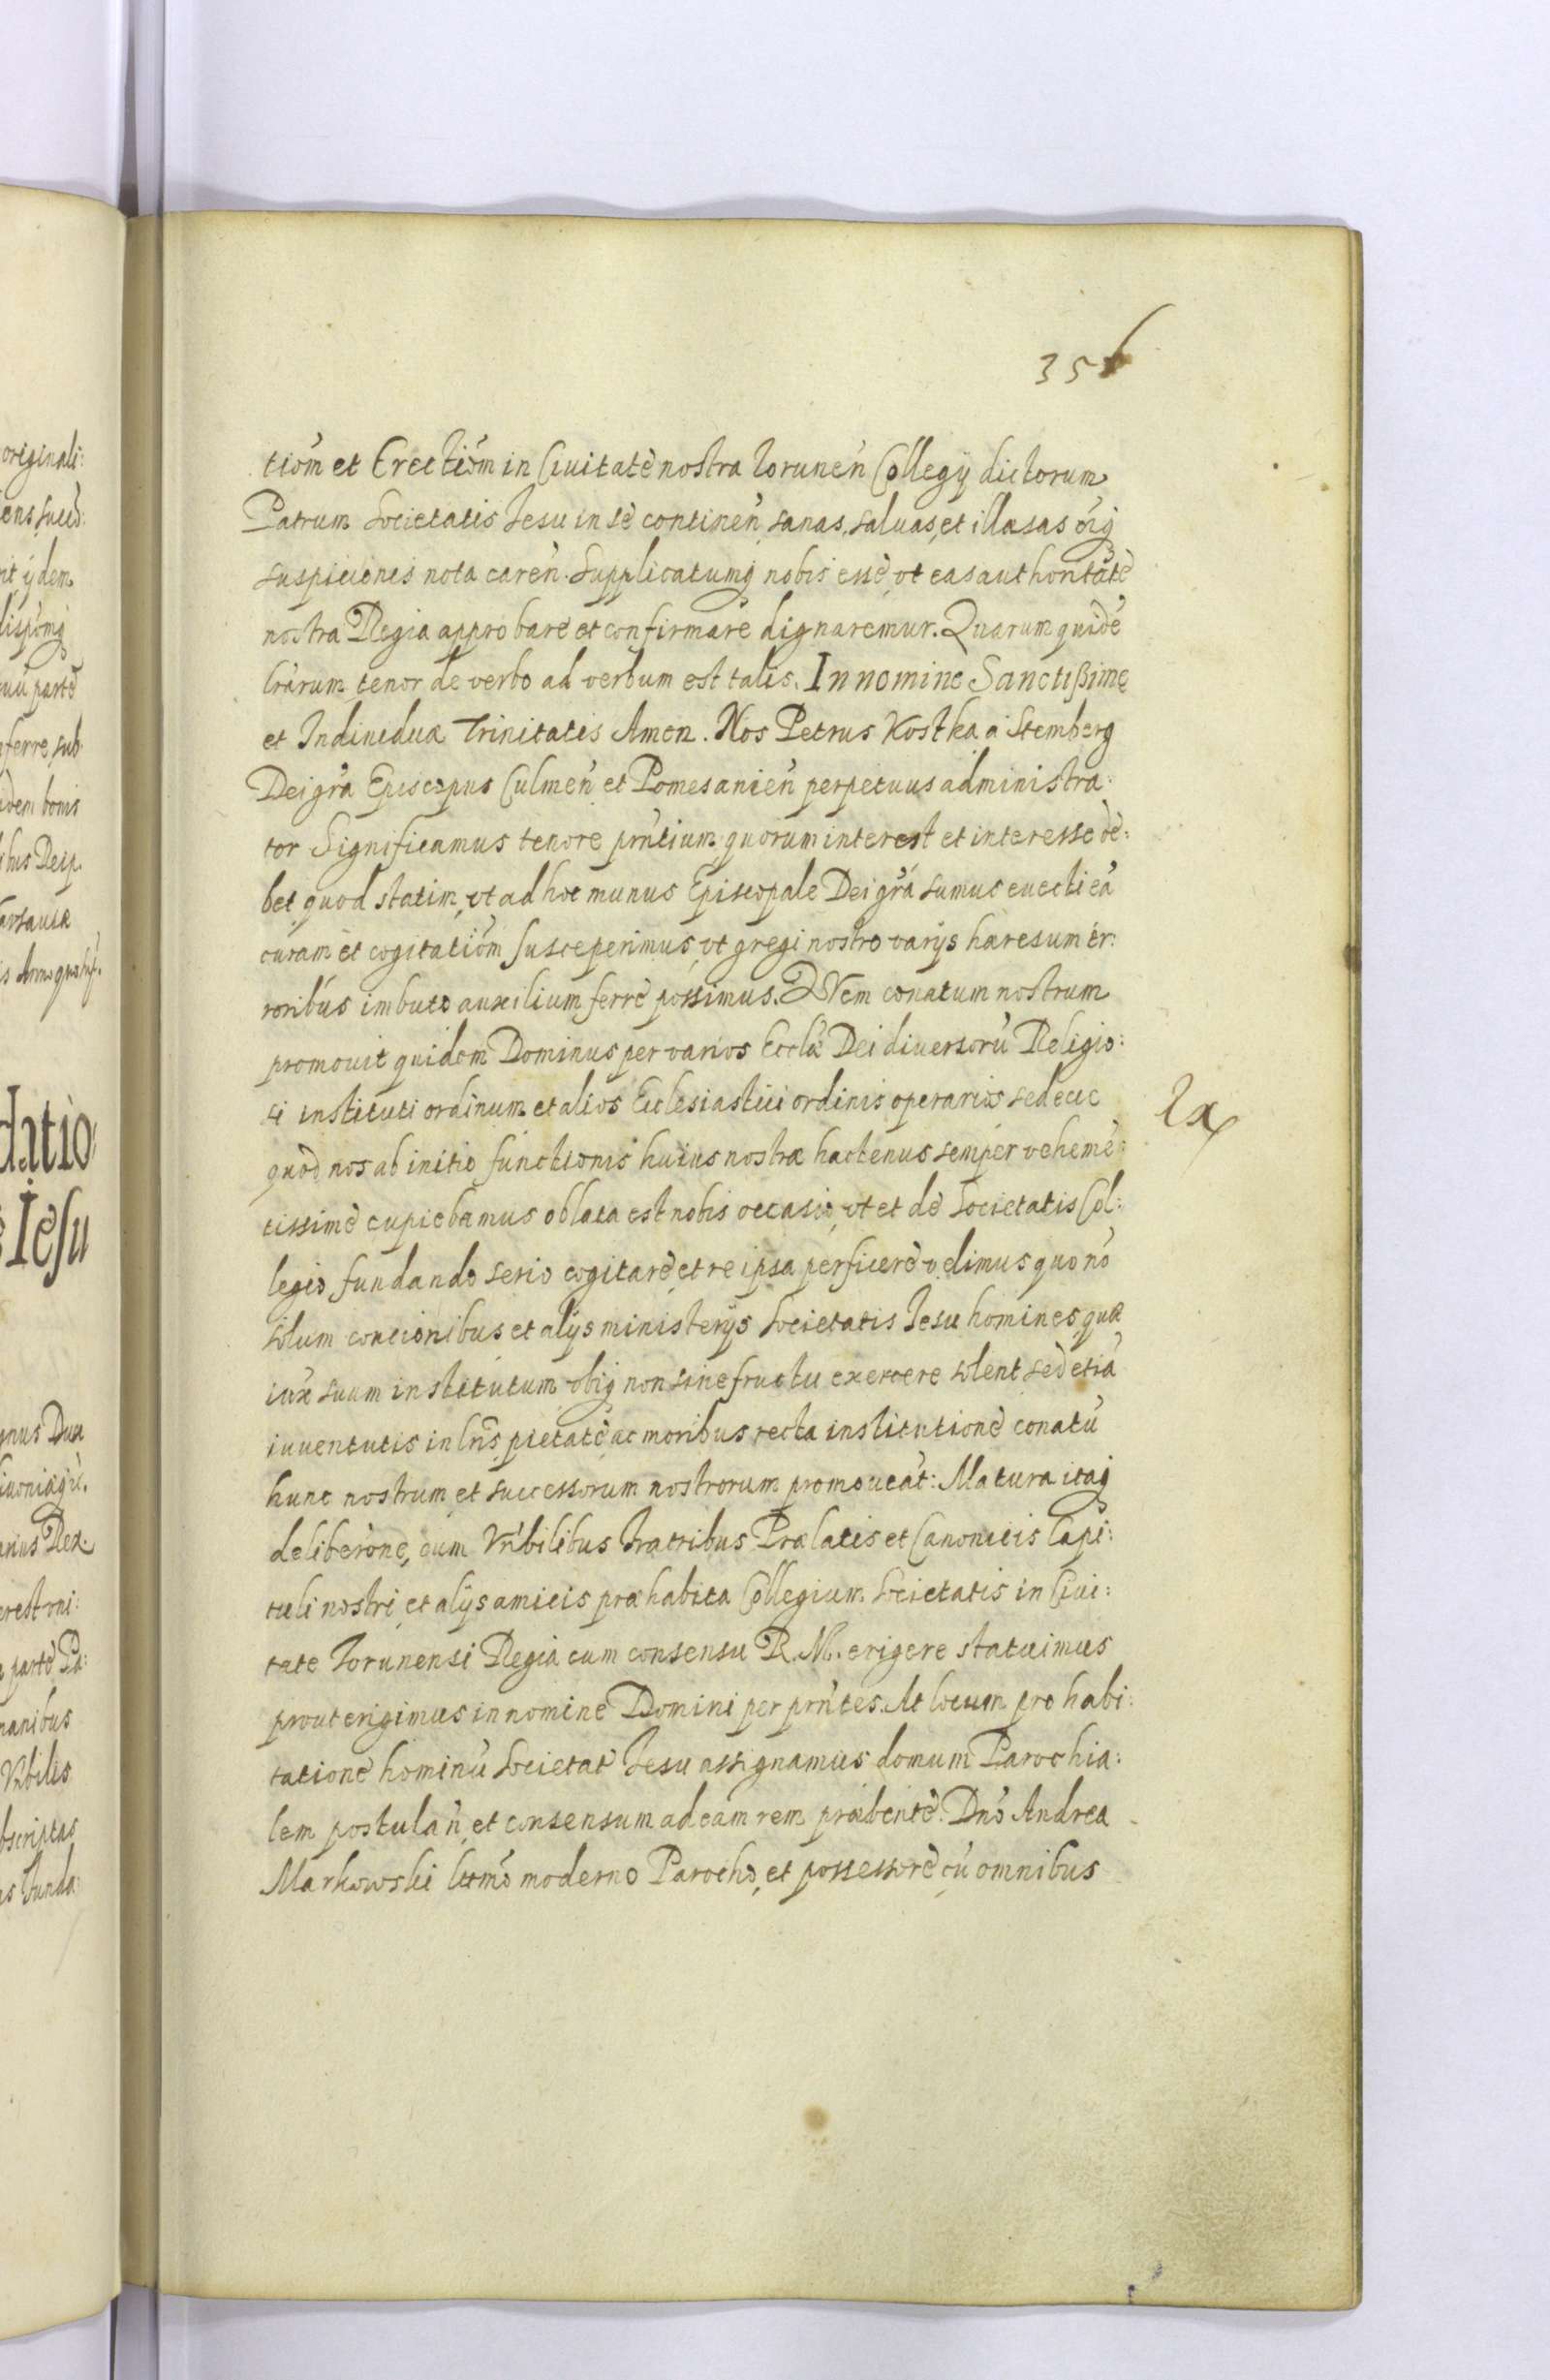 356
tiom et Erectiom in Ciuitate nostra Torunen Collegy dictorum
Patrum Societatis Jesu in se continen, sanas, saluas, et illæsas oiq
suspicionis nota caren. Supplicatumq nobis esse, vt eas authoritate
nostra Regia approbare et confirmare dignaremur. Quarum quide
lrarum tenor de verbo ad verbum est talis. In nomine Sanctißimę
et Indiuiduæ Trinitatis Amen. Nos Petrus Kostka a Stemberg
Dei gra Episcopus Culmen et Pomesanien perpetuus administra:
tor Significamus tenore prntium quorum interest et interesse de:
bet, quod statim, vt ad hoc munus Episcopale Dei gra sumus euecti ea
curam et cogitatiom susceperimus, vt gregi nostro varijs hæresum er:
roribus imbuto auxilium ferre possimus. QVem conatum nostrum
promouit quidem Dominus per varios Eccliæ Dei diuersoru Religio:
si instituti ordinum et alios Ecclesiastici ordinis operarios sed ecce
quod nos ab initio functionis huius nostræ hactenus semper veheme:
tissime cupiebamus oblata est nobis occasio, vt et de Societatis Col:
legio fundando serio cogitare, et re ipsa perficere velimus quo no
solum concionibus et alijs ministerijs Societatis Jesu homines, quæ
iux suum institutum vbiq non sine fructu exercere solent sed etia
iuuentutis in lris, pietate, ac moribus recta institutione conatu
hunc nostrum et successorum nostrorum promoueat: Matura itaq
deliberone, cum Vribilibus Fratribus Prælatis et Canonicis Capi:
tuli nostri, et alijs amicis præhabita Collegium Societatis in Ciui:
tate Torunensi Regia cum consensu R. M. erigere statuimus
prout erigimus in nomine Domini per prntes. At locum pro habi:
tatione hominu Societat Jesu assignamus domum Parochia:
lem postulan, et consensum ad eam rem præbente. Dno Andrea
Markowski ltmo moderno Parocho, et possessore cu omnibus